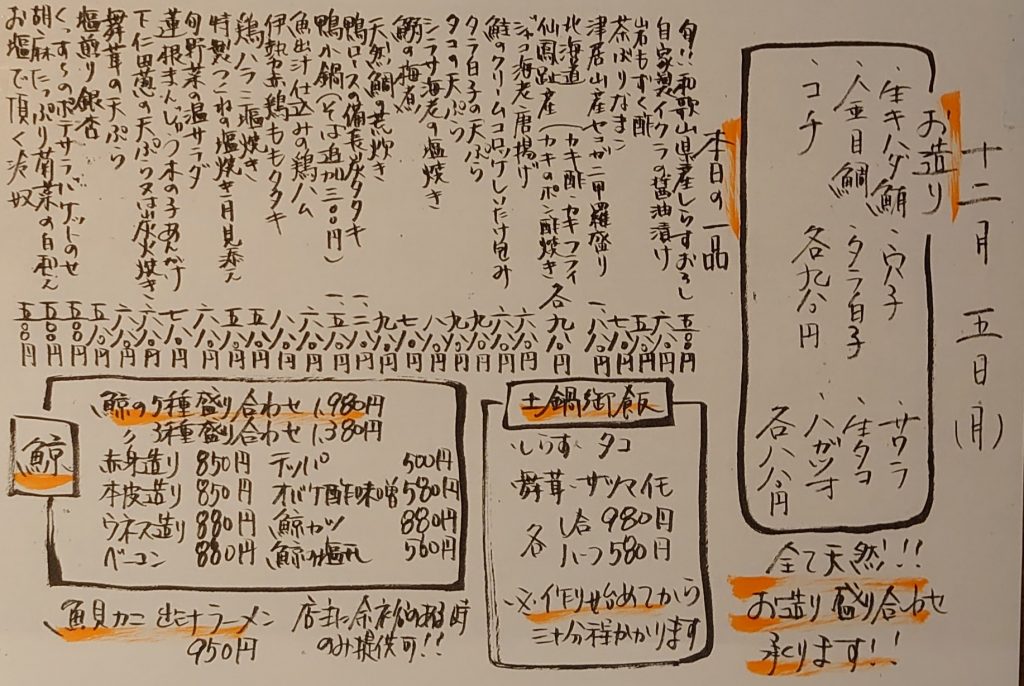 十二月 五日(月)
お造り
・生キハダ鮪 ・穴子 ・サワラ
・金目鯛 ・タラ白子 ・生タコ
・コチ 各九八〇円 ・ハガツオ
各八八〇円
全て天然!!
お造り盛り合わせ
承ります!!
本日の一品
旬!!和歌山県産しらすおろし 五八〇円
自家製イクラの醤油漬け 六八〇円
岩もずく酢 五八〇円
茶ぶりなまこ 七八〇円
津居山産セコガニ甲羅盛り 一、八〇〇円
北海道
仙鳳趾産 (カキ酢・カキフライ
(カキのポン酢焼き 各九八〇円
ジャコ海老唐揚げ 六八〇円
鮭のクリームコロッケしいたけ包み 六八〇円
タラ白子の天ぷら 九八〇円
タコの天ぷら 九八〇円
シラサ海老の塩焼き 八八〇円
鰯の梅煮 七八〇円
天然鯛の荒炊き 九八〇円
鴨ロースの備長炭タタキ 一、二八〇円
鴨小鍋(そば追加三〇〇円) 一、五八〇円
魚出汁仕込みの鶏ハム 六八〇円
伊勢赤鶏ももタタキ 八八〇円
鶏ハラミ塩焼き 五八〇円
特製つくねの塩焼き月見添え 五八〇円
旬野菜の温サラダ 六八〇円
蓮根まんじゅう木の子あんかけ 七八〇円
下仁田葱の天ぷら又は炭火焼き 六八〇円
舞茸の天ぷら 六八〇円
塩煎り銀杏 五八〇円
くっすーのポテサラバゲットのせ 五〇〇円
胡麻たっぷり菊菜の白和え 五〇〇円
お塩で頂く冷奴 五〇〇円
土鍋御飯
・しらす・タコ
舞茸・サツマイモ
各 1合 980円
ハーフ 580円
※作り始めてから
三十分程かかります
鯨
鯨の5種盛り合わせ 1,980円
〃 3種盛り合わせ 1,380円
赤身造り 850円 テッパ 500円
本皮造り 850円 オバケ酢味噌 580円
ウネス造り 880円 鯨カツ 880円
ベーコン 880円 鯨の塩 560円
魚貝カニ出汁ラーメン 店主に余裕のある時
950円 のみ提供可!!